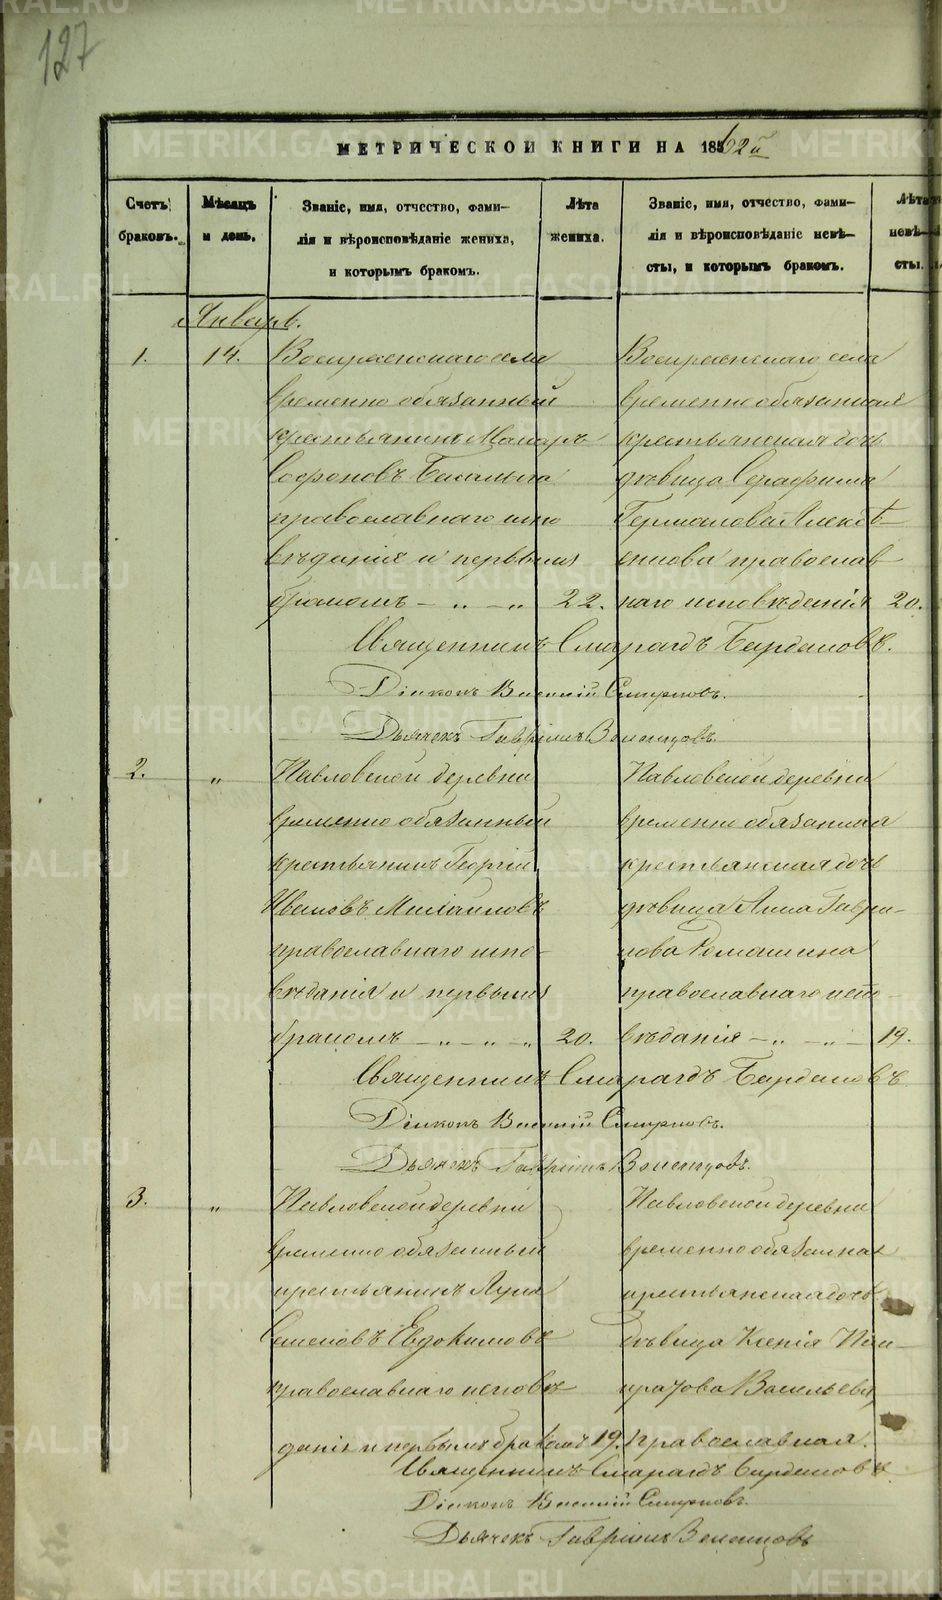 127
МЕТРИЧЕСКОЙ КНИГИ НА 1862й
Счетъ браковъ.
Мѣсяцъ и день.
Званіе, имя, отчество, фами-
лія и вѣроисповѣданіе жениха,
и которымъ бракомъ.
Лѣта
жениха.
Званіе, имя, отчество, фами-
лія и вѣроисповѣданіе невѣ-
сты, и которымъ бракомъ.
Лѣта
невѣ-
сты.
Январь.
1.
14.
Воскресенскаго села
временно обязанный
крестьянинъ Макаръ
Софоновъ
православнаго испо
вѣданія и первымъ
бракомъ — „ — „
22.
Воскресенскаго села
временно обязанная
крестьянская дочь
дѣвица Серафима
Германова Алексѣ-
енкова православ
наго исповѣданія
20.
Священникъ Смарагдъ Бирдюковъ.
Діаконъ Василій Смирновъ.
Дьячекъ Гавріилъ
2.
„
Павловской деревни
временно обязанный
крестьянинъ Георгій
Ивановъ Михайловъ
православнаго испо-
вѣданія и первымъ
бракомъ — „ — „ — „
20.
Павловской деревни
временно обязанная
крестьянская дочь
дѣвица Анна Гаври-
лова Ромашина
православнаго испо-
вѣданія — „ — „ —
19.
Священникъ Смарагдъ
Діаконъ Василій Смирновъ.
Дьячекъ Гавріилъ
3.
„
Павловской деревни
временно обязанный
крестьянинъ Лука
Семеновъ Евдокимовъ
православнаго исповѣ
данія и первымъ бракомъ
19.
Павловской деревни
временно обязанная
крестьянская дочь
дѣвица Ксенія Пан-
кратова Васильева
православная.
Священникъ Смарагдъ
Діаконъ Василій Смирновъ.
Дьячекъ Гавріилъ
METRIKI.GASO-URAL.RU